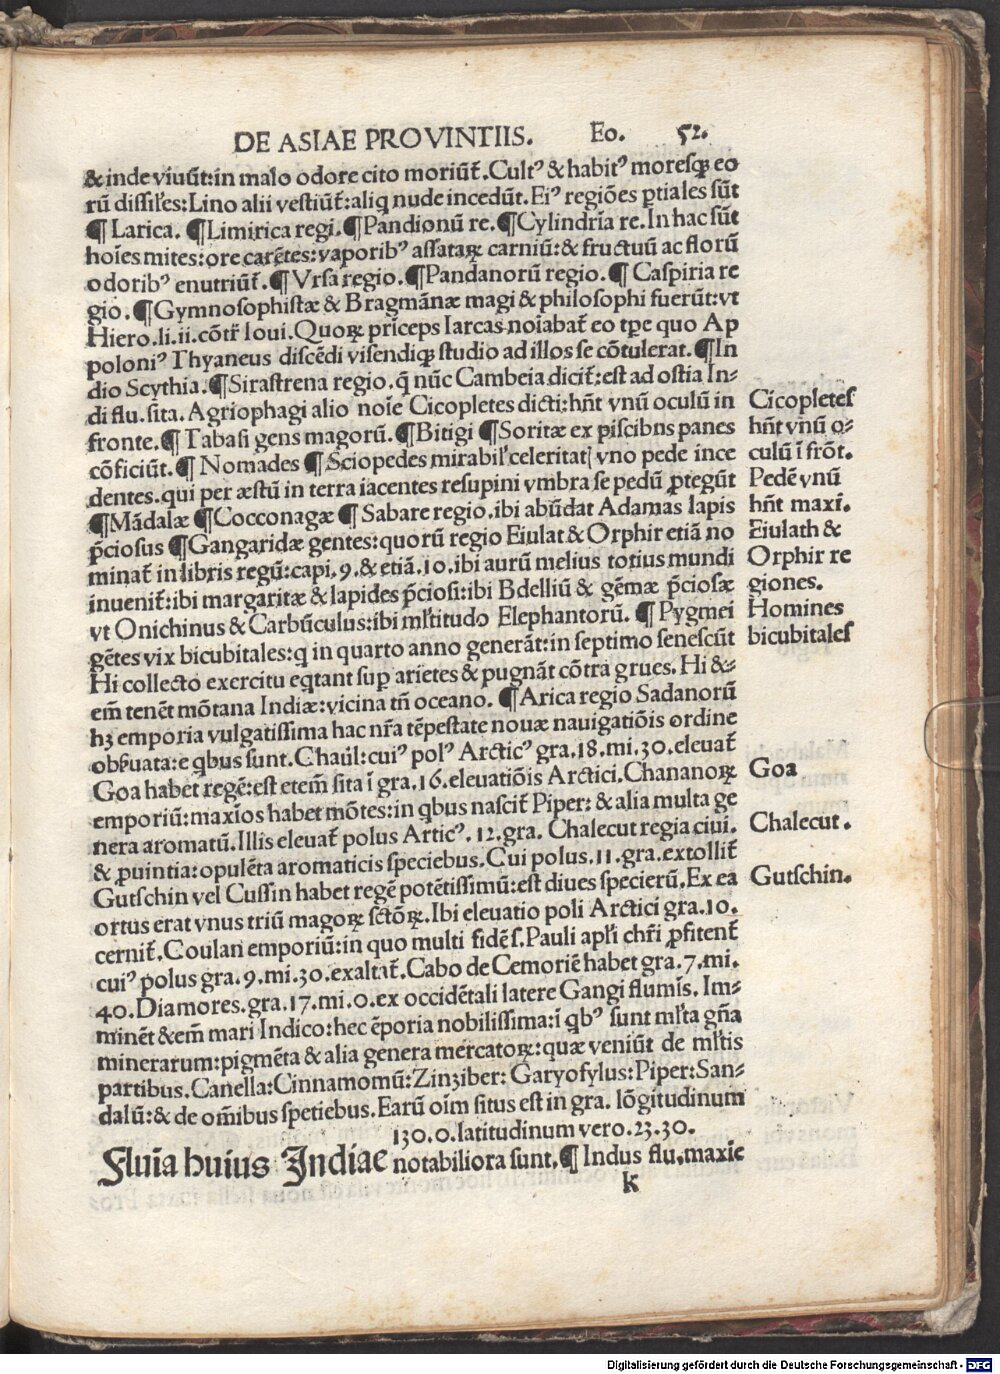 DE ASIAE PROVINTIIS. Eo. 52.
& inde viuūt: in malo odore cito moriūt̃. Cultꝰ & habitꝰ moresqꝫ eo
rū dissil̃es: Lino alii vestiūt̃: aliq nude incedūt. Eiꝰ regiões ꝑtiales sūt
¶ Larica. ¶ Limirica regi. ¶ Pandionū re. ¶ Cylindria re. In hac sūt
hoĩes mites: ore carẽtes: vaporibꝰ assataꝝ carniū: & fructuū ac florū
odoribꝰ enutriūt̃. ¶ Vrsa regio. ¶ Pandanorū regio. ¶ Caspiria re
gio. ¶ Gymnosophistæ & Bragmãnæ magi & philosophi fuerūt: vt
Hiero. li. ii. cõtr̃ Ioui. Quoꝝ prĩceps Iarcas noĩabat̃ eo tp̃e quo Ap
poloniꝰ Thyaneus discẽdi visendiqꝫ studio ad illos se cõtulerat. ¶ In
dio Scythia. ¶ Sirastrena regio. q̃ nūc Cambeia dicit̃: est ad ostia In-
di flu. sita. Agriophagi alio noĩe Cicopletes dicti: hñt vnū oculū in
fronte. ¶ Tabasi gens magorū. ¶ Bitigi ¶ Soritæ ex piscibns panes
cõficiūt. ¶ Nomades ¶ Sciopedes mirabil' celeritat] vno pede ince
dentes. qui per æstū in terra iacentes resupini vmbra se pedū ꝓtegūt
¶ Mãdalæ ¶ Cocconagæ ¶ Sabare regio. ibi abūdat Adamas lapis
p̃ciosus ¶ Gangaridæ gentes: quorū regio Eiulat & Orphir etiã no
minat̃ in libris regū: capi. 9. & etiã. 10. ibi aurū melius totius mundi
inuenit̃: ibi margaritæ & lapides p̃ciosi: ibi Bdelliū & gẽmæ p̃ciosæ
vt Onichinus & Carbūculus: ibi ml̃titudo Elephantorū. ¶ Pygmei
gẽtes vix bicubitales: q in quarto anno generãt: in septimo senescūt
Hi collecto exercitu eqtant suꝑ arietes & pugnãt cõtra grues. Hi &-
em̃ tenẽt mõtana Indiæ: vicina tñ oceano. ¶ Arica regio Sadanorū
hꝫ emporia vulgatissima hac nr̃a tẽpestate nouæ nauigatiõis ordine
obẽuata: e qbus sunt. Chaūl: cuiꝰ polꝰ Arcticꝰ gra. 18. mi. 30. eleuat̃
Goa habet regẽ: est etem̃ sita ĩ gra. 16. eleuatiõis Arctici. Chananoꝝ
emporiū: maxĩos habet mõtes: in qbus nascit̃ Piper: & alia multa ge
nera aromatū. Illis eleuat̃ polus Articꝰ. 12. gra. Chalecut regia ciui.
& ꝓuintia: opulẽta aromaticis speciebus. Cui polus. 11. gra. extollit̃
Gutschin vel Cussin habet regẽ potẽtissimū: est diues specierū. Ex ea
ortus erat vnus triū magoꝝ sctõꝝ. Ibi eleuatio poli Arctici gra. 10.
cernit̃. Coulan emporiū: in quo multi fidẽ s. Pauli apl̃i chr̃i ꝓfitent̃
cuiꝰ polus gra. 9. mi. 30. exaltat̃. Cabo de Cemoriẽ habet gra. 7. mi.
40. Diamores. gra. 17. mi. 0. ex occidẽtali latere Gangi flumĩs. Im-
minẽt &em̃ mari Indico: hec ẽporia nobilissima: ĩ qbꝰ sunt ml̃ta gña
minerarum: pigmẽta & alia genera mercatoꝝ: quæ veniūt de ml̃tis
partibus. Canella: Cinnamomū: Zinziber: Garyofylus: Piper: San-
dalū: & de om̃ibus spetiebus. Earū oĩm situs est in gra. lõgitudinum
130. 0. latitudinum vero. 23. 30.
Fluĩa huius Indiae notabiliora sunt. ¶ Indus flu. maxie
k
Cicopletes
hñt vnū o-
culū ĩ frõt.
Pedẽ vnū
hñt maxĩ.
Eiulath &
Orphir re
giones.
Homines
bicubitales
Goa
Chalecut.
Gutschin.
Digitalisierung gefördert durch die Deutsche Forschungsgemeinschaft - DFG